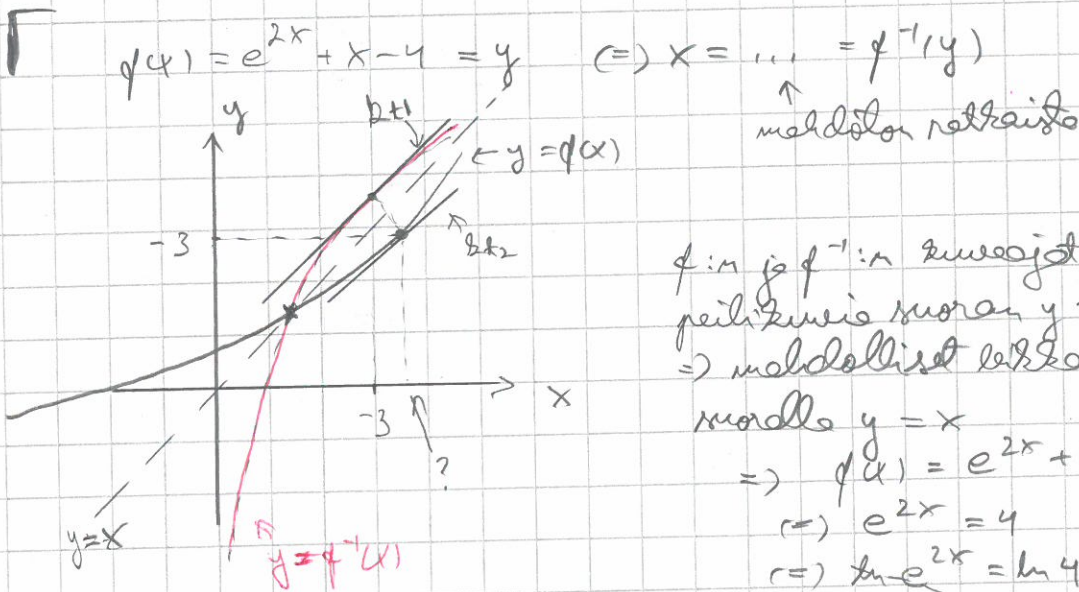 f(x) = e^{2x} + x - 4 = y (=) x = ... = f^{-1}(y)
↑
mahdoton ratkaista
y
kt1
← y = f(x)
-3
kt2
x
-3
?
y=x
y = f^{-1}(x)
f:n ja f^{-1}:n kuvaajat
peilikuvia suoran y
=) mahdolliset leikka
suoralla y = x
=) f(x) = e^{2x} +
(=) e^{2x} = 4
(=) ln e^{2x} = ln 4